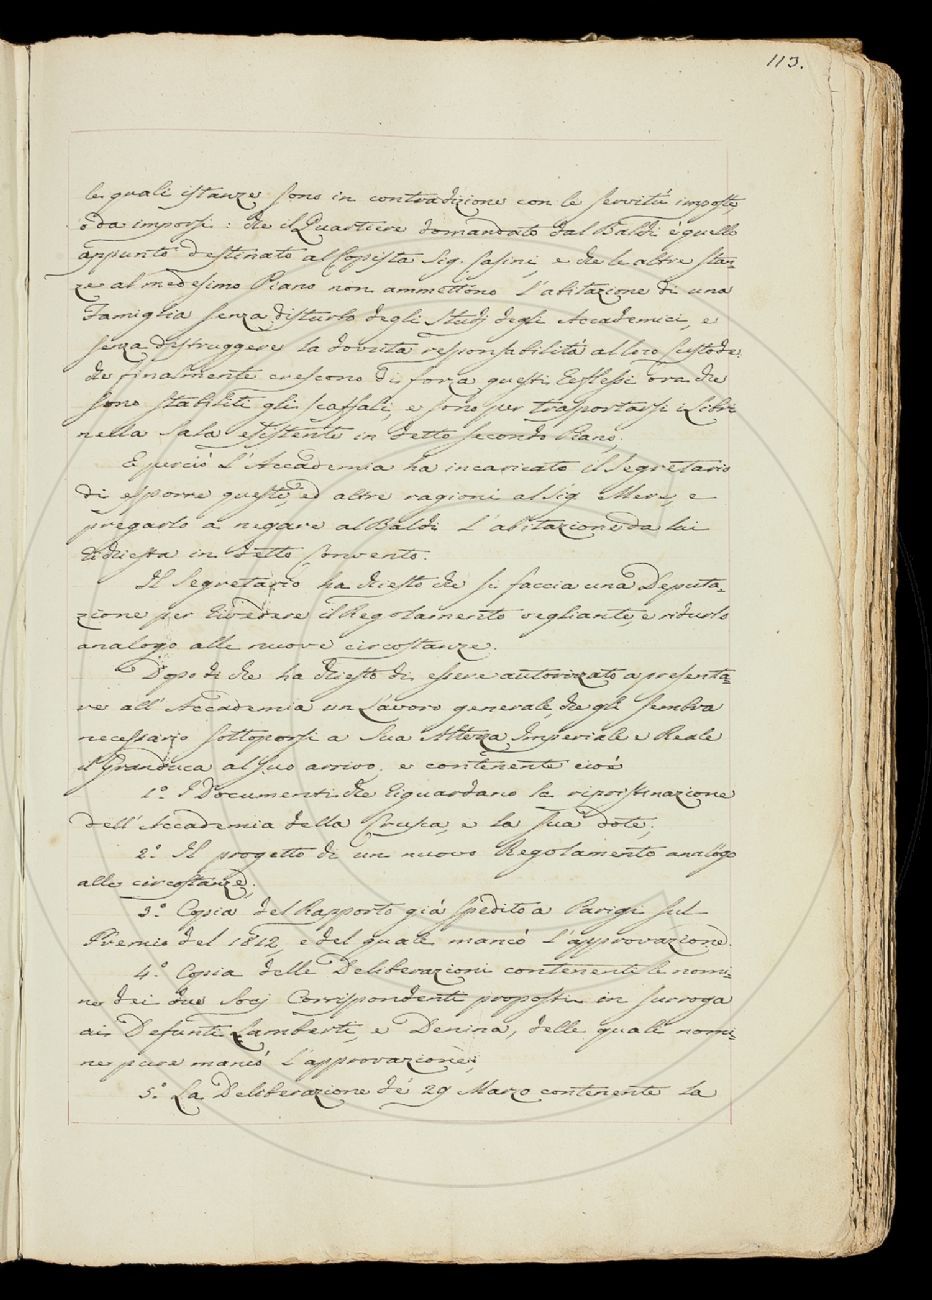 113.
le quali istanze sono in contradizione con le servitù imposte,
o da imporsi: che il Quartiere domandato dal Baldi è quello
appunto destinato al Copista Sig. Casini, e che le altre stan=
ze al medesimo Piano non ammettono l'abitazione di una
Famiglia senza disturbo degli Studj degli Accademici, e
senza distruggere la dovuta responsabilità al loro Custode;
che finalmente crescono di forza questi Riflessi ora che
sono stabiliti gli scaffali, e sono per trasportarsi i Libri
nella Sala esistente in detto secondo Piano.
E perciò l'Accademia ha incaricato il Segretario
di esporre queste, ed altre ragioni al Sig. Mere, e
pregarlo a negare al Baldi l'abitazione da lui
richiesta in detto Convento.
Il Segretario ha chiesto che si faccia una Deputa=
zione per rivedere il Regolamento vegliante, e ridurlo
analogo alle nuove circostanze.
Dopo di che ha chiesto di essere autorizzato a presenta=
re all'Accademia un Lavoro generale, che gli sembra
necessario sottoporsi a Sua Altezza Imperiale e Reale
il Granduca al suo arrivo, e contenente cioè
1.° I Documenti che riguardano la ripristinazione
dell'Accademia della Crusca, e la sua dote;
2.° Il progetto di un nuovo Regolamento analogo
alle circostanze;
3.° Copia del Rapporto già spedito a Parigi sul
Premio del 1812, e del quale mancò l'approvazione.
4.° Copia delle Deliberazioni contenenti le nomi=
ne dei due Socj Corrispondenti proposti in surroga
ai Defunti Lamberti, e Denina, delle quali nomi=
ne pure mancò l'approvazione;
5.° La Deliberazione de' 29 Marzo contenente la